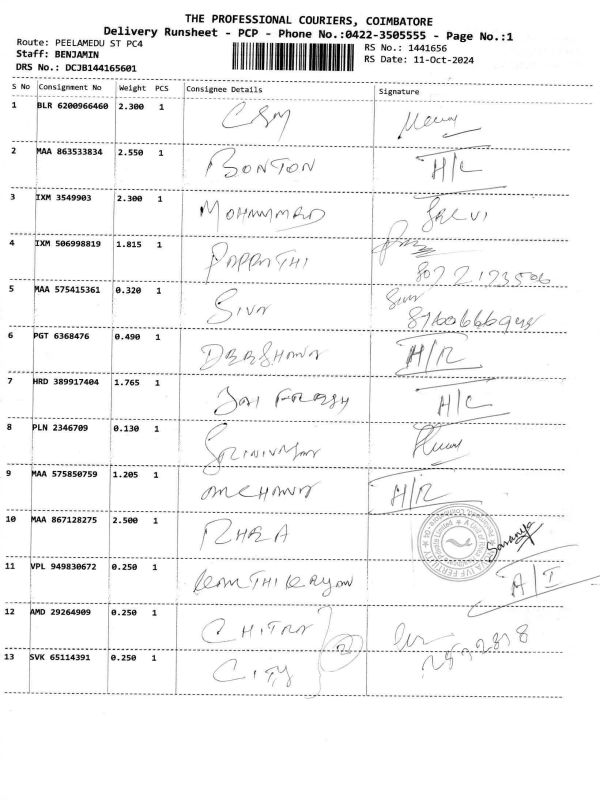 THE PROFESSIONAL COURIERS, COIMBATORE
Delivery Runsheet - PCP - Phone No.:0422-3505555 - Page No.:1
Route: PEELAMEDU ST PC4 RS No.: 1441656
Staff: BENJAMIN RS Date: 11-Oct-2024
DRS No.: DCJB144165601
S No Consignment No Weight PCS Consignee Details Signature
1 BLR 6200966460 2.300 1
2 MAA 863533834 2.550 1 BONTON
3 IXM 3549903 2.300 1 MOHAMMED SELVI
4 IXM 506998819 1.815 1
5 MAA 575415361 0.320 1 SIVA
6 PGT 6368476 0.490 1 H/R
7 HRD 389917404 1.765 1 H/C
8 PLN 2346709 0.130 1
9 MAA 575850759 1.205 1 H/R
10 MAA 867128275 2.500 1 Saranya
11 VPL 949830672 0.250 1 A/I
12 AMD 29264909 0.250 1 CHITRA
13 SVK 65114391 0.250 1 CITY